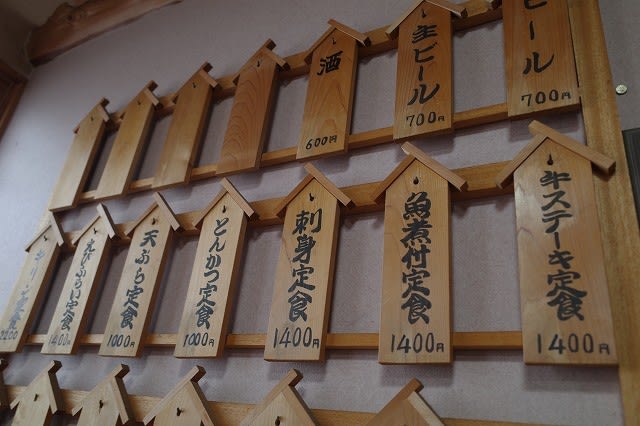 酒
600円
生ビール
700円
ビール
700円
えびふらい定食
1000円
天ぷら定食
1000円
とんかつ定食
1000円
刺身定食
1400円
魚煮付定食
1400円
牛ステーキ定食
1400円